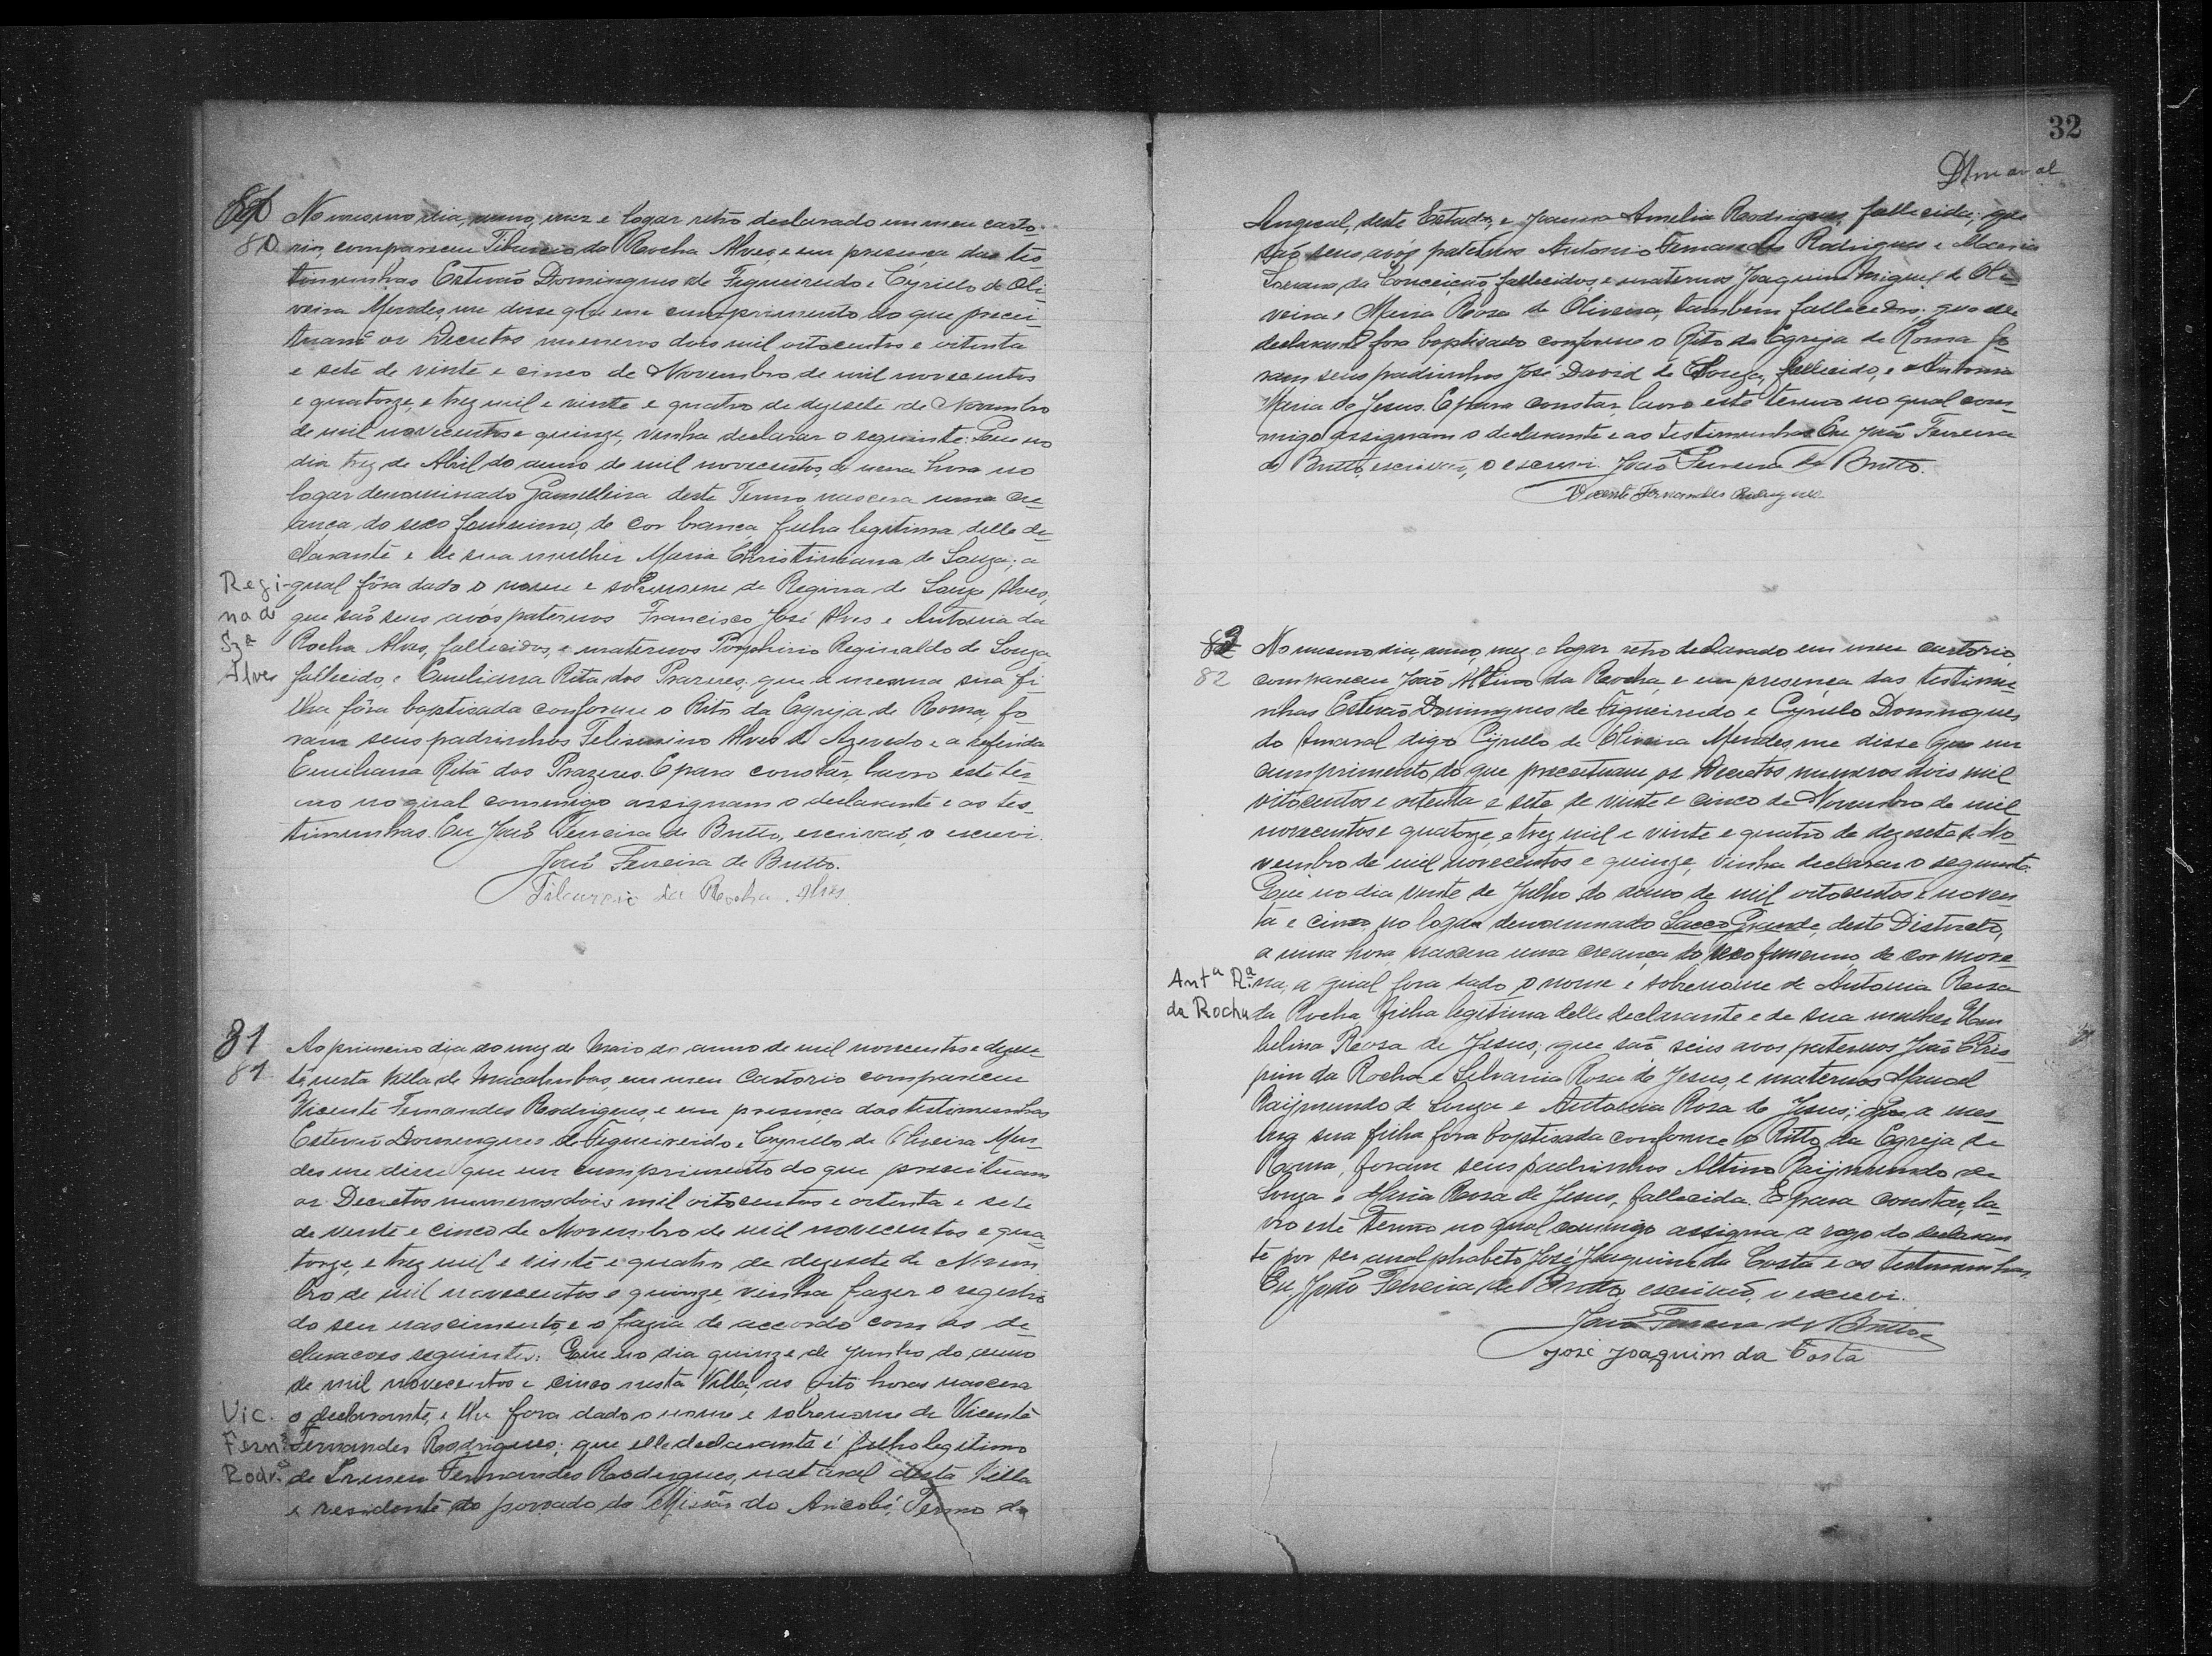 80
No mesmo dia, anno, mez e logar retro declarado em meu carto-
80 rio, compareceu Tiburcio da Rocha Alves, e em presença das tes
timunhas Estevão Domingues de Figueiredo e Cyrillo de Oli-
veira Mendes, me disse que em cumprimento do que precei-
tuam os Decretos numeros dois mil oitocentos e oitenta
e sete de vinte e cinco de Novembro de mil novecentos
e quatorze, e trez mil e vinte e quatro de dezesete de Novembro
de mil novecentos e quinze, vinha declarar o seguinte: Que no
dia trez de Abril do anno de mil novecentos, a uma hora no
logar denominado Gamelleira deste Termo, nascera uma cre-
ança do sexo feminino, de cor branca, filha legitima delle de-
clarante e de sua mulher Maria Christiniana de Souza; a
Regi- qual fôra dado o nome e sobrenome de Regina de Souza Alves,
na de que são seus avós paternos Francisco José Alves e Antonia da
Sza Rocha Alves, fallecidos, e maternos Porphirio Reginaldo de Souza
Alves fallecido, e Emiliana Rita dos Prazeres, que a mesma sua fi
lha fôra baptisada conforme o Rito da Egreja de Roma, fo
ram seus padrinhos Felismino Alves de Azevedo e a referida
Emiliana Rita dos Prazeres. E para constar, lavro este ter
mo no qual commigo assignam o declarante e as tes-
timunhas. Eu João Ferreira de Britto, escrivão, o escrevi.
João Ferreira de Britto.
Tiburcio da Rocha Alves
81
Ao primeiro dia do mez de Maio do anno de mil novecentos e dezese
81 te nesta Villa de Macahubas, em meu Cartorio compareceu
Vicente Fernandes Rodrigues, e em presença das testimunhas
Estevão Domingues de Figueiredo e Cyrillo de Oliveira Men-
des me disse que em cumprimento do que preceituam
os Decretos numeros dois mil oitocentos e oitenta e sete
de vinte e cinco de Novembro de mil novecentos e qua-
torze, e trez mil e vinte e quatro de dezesete de Novem
bro de mil novecentos e quinze, vinha fazer o registro
do seu nascimento, e o fazia de accordo com as de-
claracoes seguintes: Que no dia quinze de Junho do anno
de mil novecentos e cinco nesta Villa, as oito horas nascera
Vic. o declarante, e lhe fora dado o nome e sobrenome de Vicente
Fern.s Fernandes Rodrigues; que elle declarante é filho legitimo
Rodr.s de Irineu Fernandes Rodrigues, natural desta Villa
e residente do povoado da Missão do Aricobé, Termo de
32
DAmaral
Angical, deste Estado, e Joanna Amelia Rodrigues, fallecida; que
são seus avós paternos Antonio Fernandes Rodrigues e Maria
da Conceição, fallecidos, e maternos Joaquim Miguel de Oli-
veira e Maria Rosa de Oliveira, tambem fallecidos; que elle
declarante fora baptisado conforme o Rito da Egreja de Roma fo-
ram seus padrinhos José David de Souza, fallecido, e Antonia
Maria de Jesus. E para constar, lavro este termo no qual com-
migo assignam o declarante e as testimunhas. Eu João Ferreira
de Britto, escrivão, o escrevi. João Ferreira de Britto.
Vicente Fernandes Rodrigues
82 No mesmo dia, anno, mez e logar retro declarado em meu cartorio,
82 compareceu João Altino da Rocha, e em presença das testimu-
nhas Estevão Domingues de Figueiredo e Cyrillo Domingues
do Amaral digo Cyrillo de Oliveira Mendes, me disse que em
cumprimento do que preceituam os Decretos numeros dois mil
oitocentos e oitenta e sete de vinte e cinco de Novembro de mil
novecentos e quatorze, e trez mil e vinte e quatro de dezesete de No-
vembro de mil novecentos e quinze, vinha declarar o seguinte.
Que no dia vinte de Julho do anno de mil oitocentos e noven
ta e cinco, no logar denominado Sacco Grande, deste Districto,
a uma hora, nascera uma creança do sexo feminino, de cor more-
Anta Ra na, a qual fora dado o nome e sobrenome de Antonia Rosa
da Rocha da Rocha filha legitima delle declarante e de sua mulher Um
belina Rosa de Jesus; que são seus avos paternos João Chris
pim da Rocha e Silvania Rosa de Jesus, e maternos Manoel
Raijmundo de Souza e Antonia Rosa de Jesus; que a mes-
ma sua filha fora baptisada conforme o Ritto da Egreja de
Roma, foram seus padrinhos Altino Raijmundo de
Souza e Maria Rosa de Jesus, fallecida. E para constar, la-
vro este termo no qual commigo assigna a rogo do declaran-
te por ser analphabeto José Joaquim da Costa e as testimunhas.
Eu, João Ferreira de Britto, escrivão, o escrevi.
João Ferreira de Britto
José Joaquim da Costa